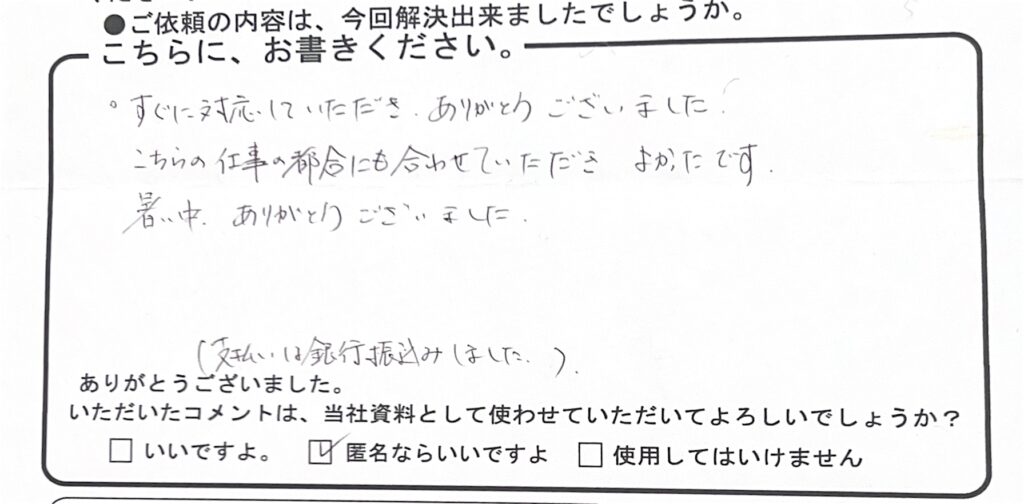 ●ご依頼の内容は、今回解決出来ましたでしょうか。
こちらに、お書きください。
。すぐに対応していただき、ありがとうございました。
こちらの仕事の都合にも合わせていただき よかたです.
暑い中、ありがとうございました.
(支払いは銀行振込みしました.)
ありがとうございました。
いただいたコメントは、当社資料として使わせていただいてよろしいでしょうか？
□ いいですよ。 ☑ 匿名ならいいですよ □ 使用してはいけません